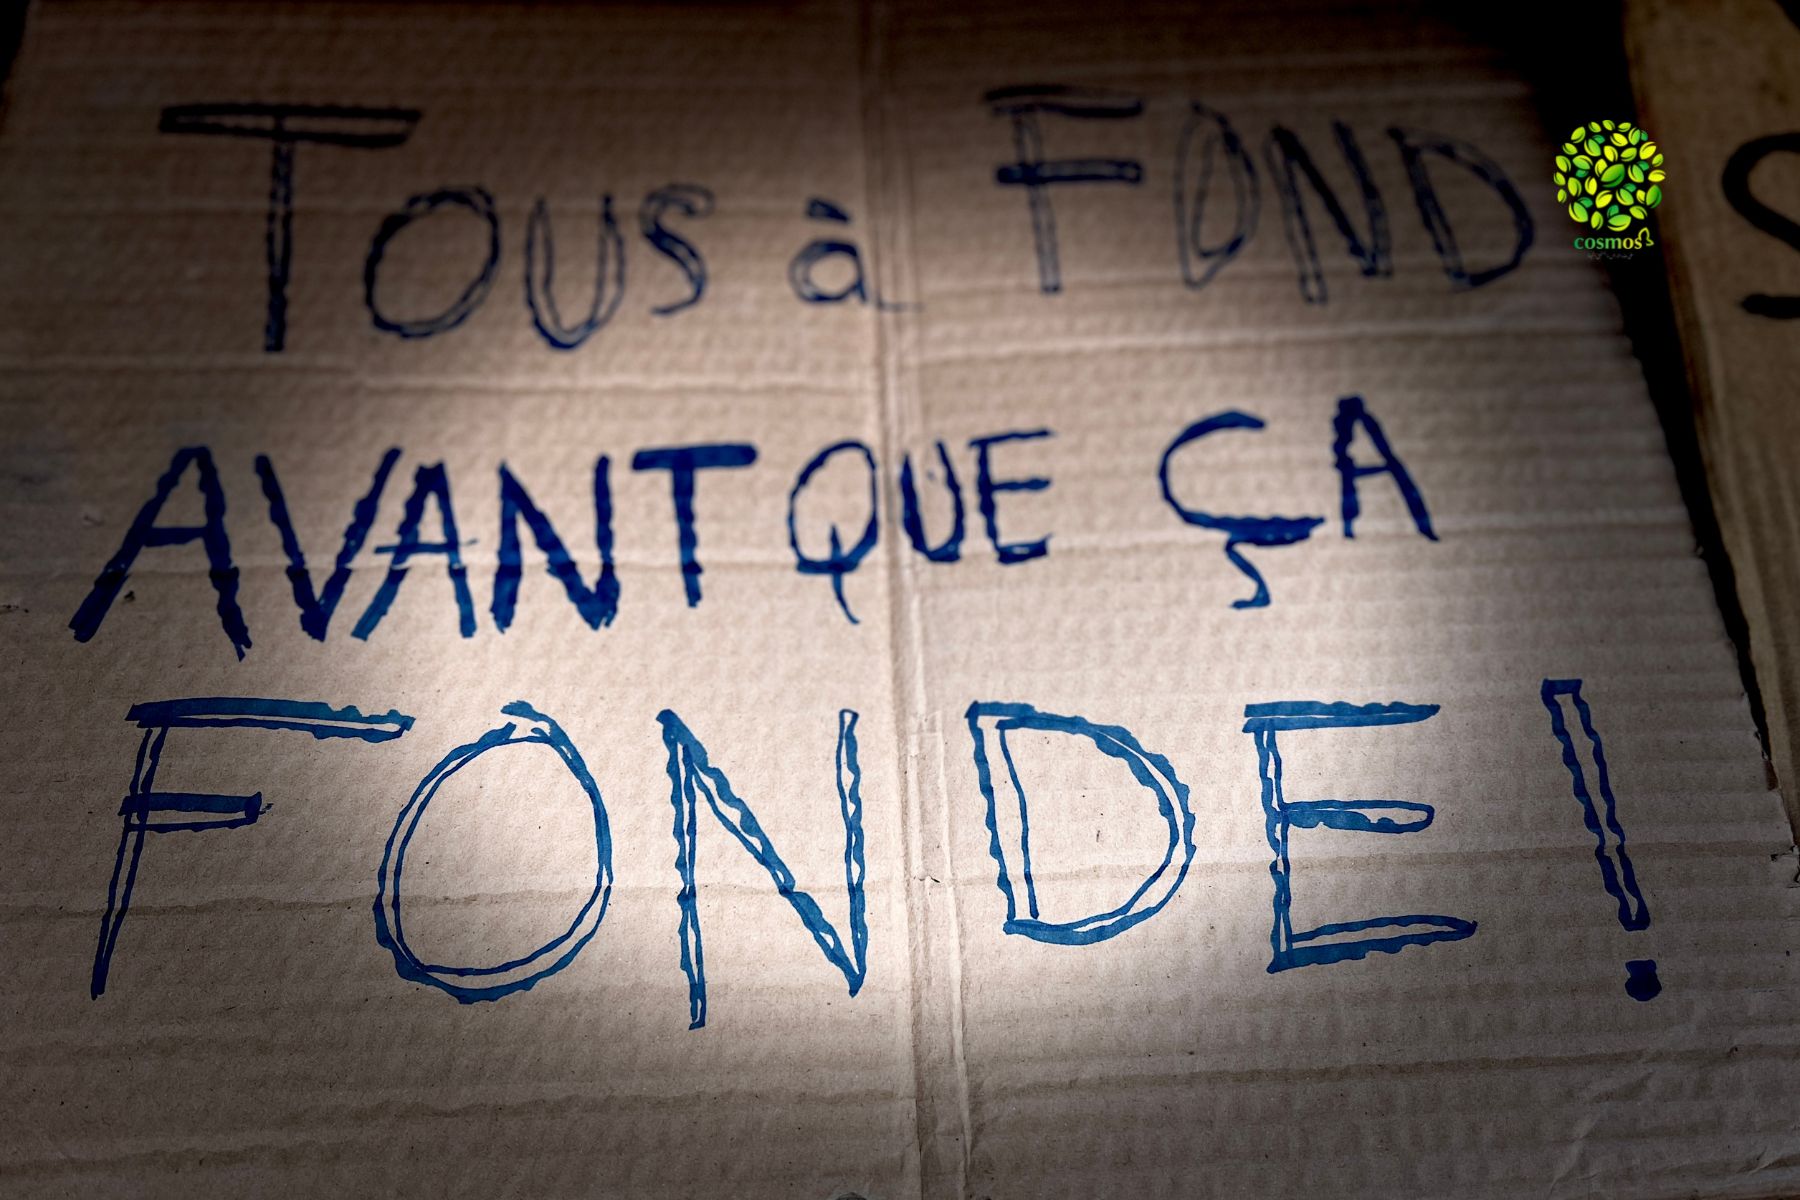 Tous à FOND
AVANT QUE ÇA
FONDE!
cosmos
S